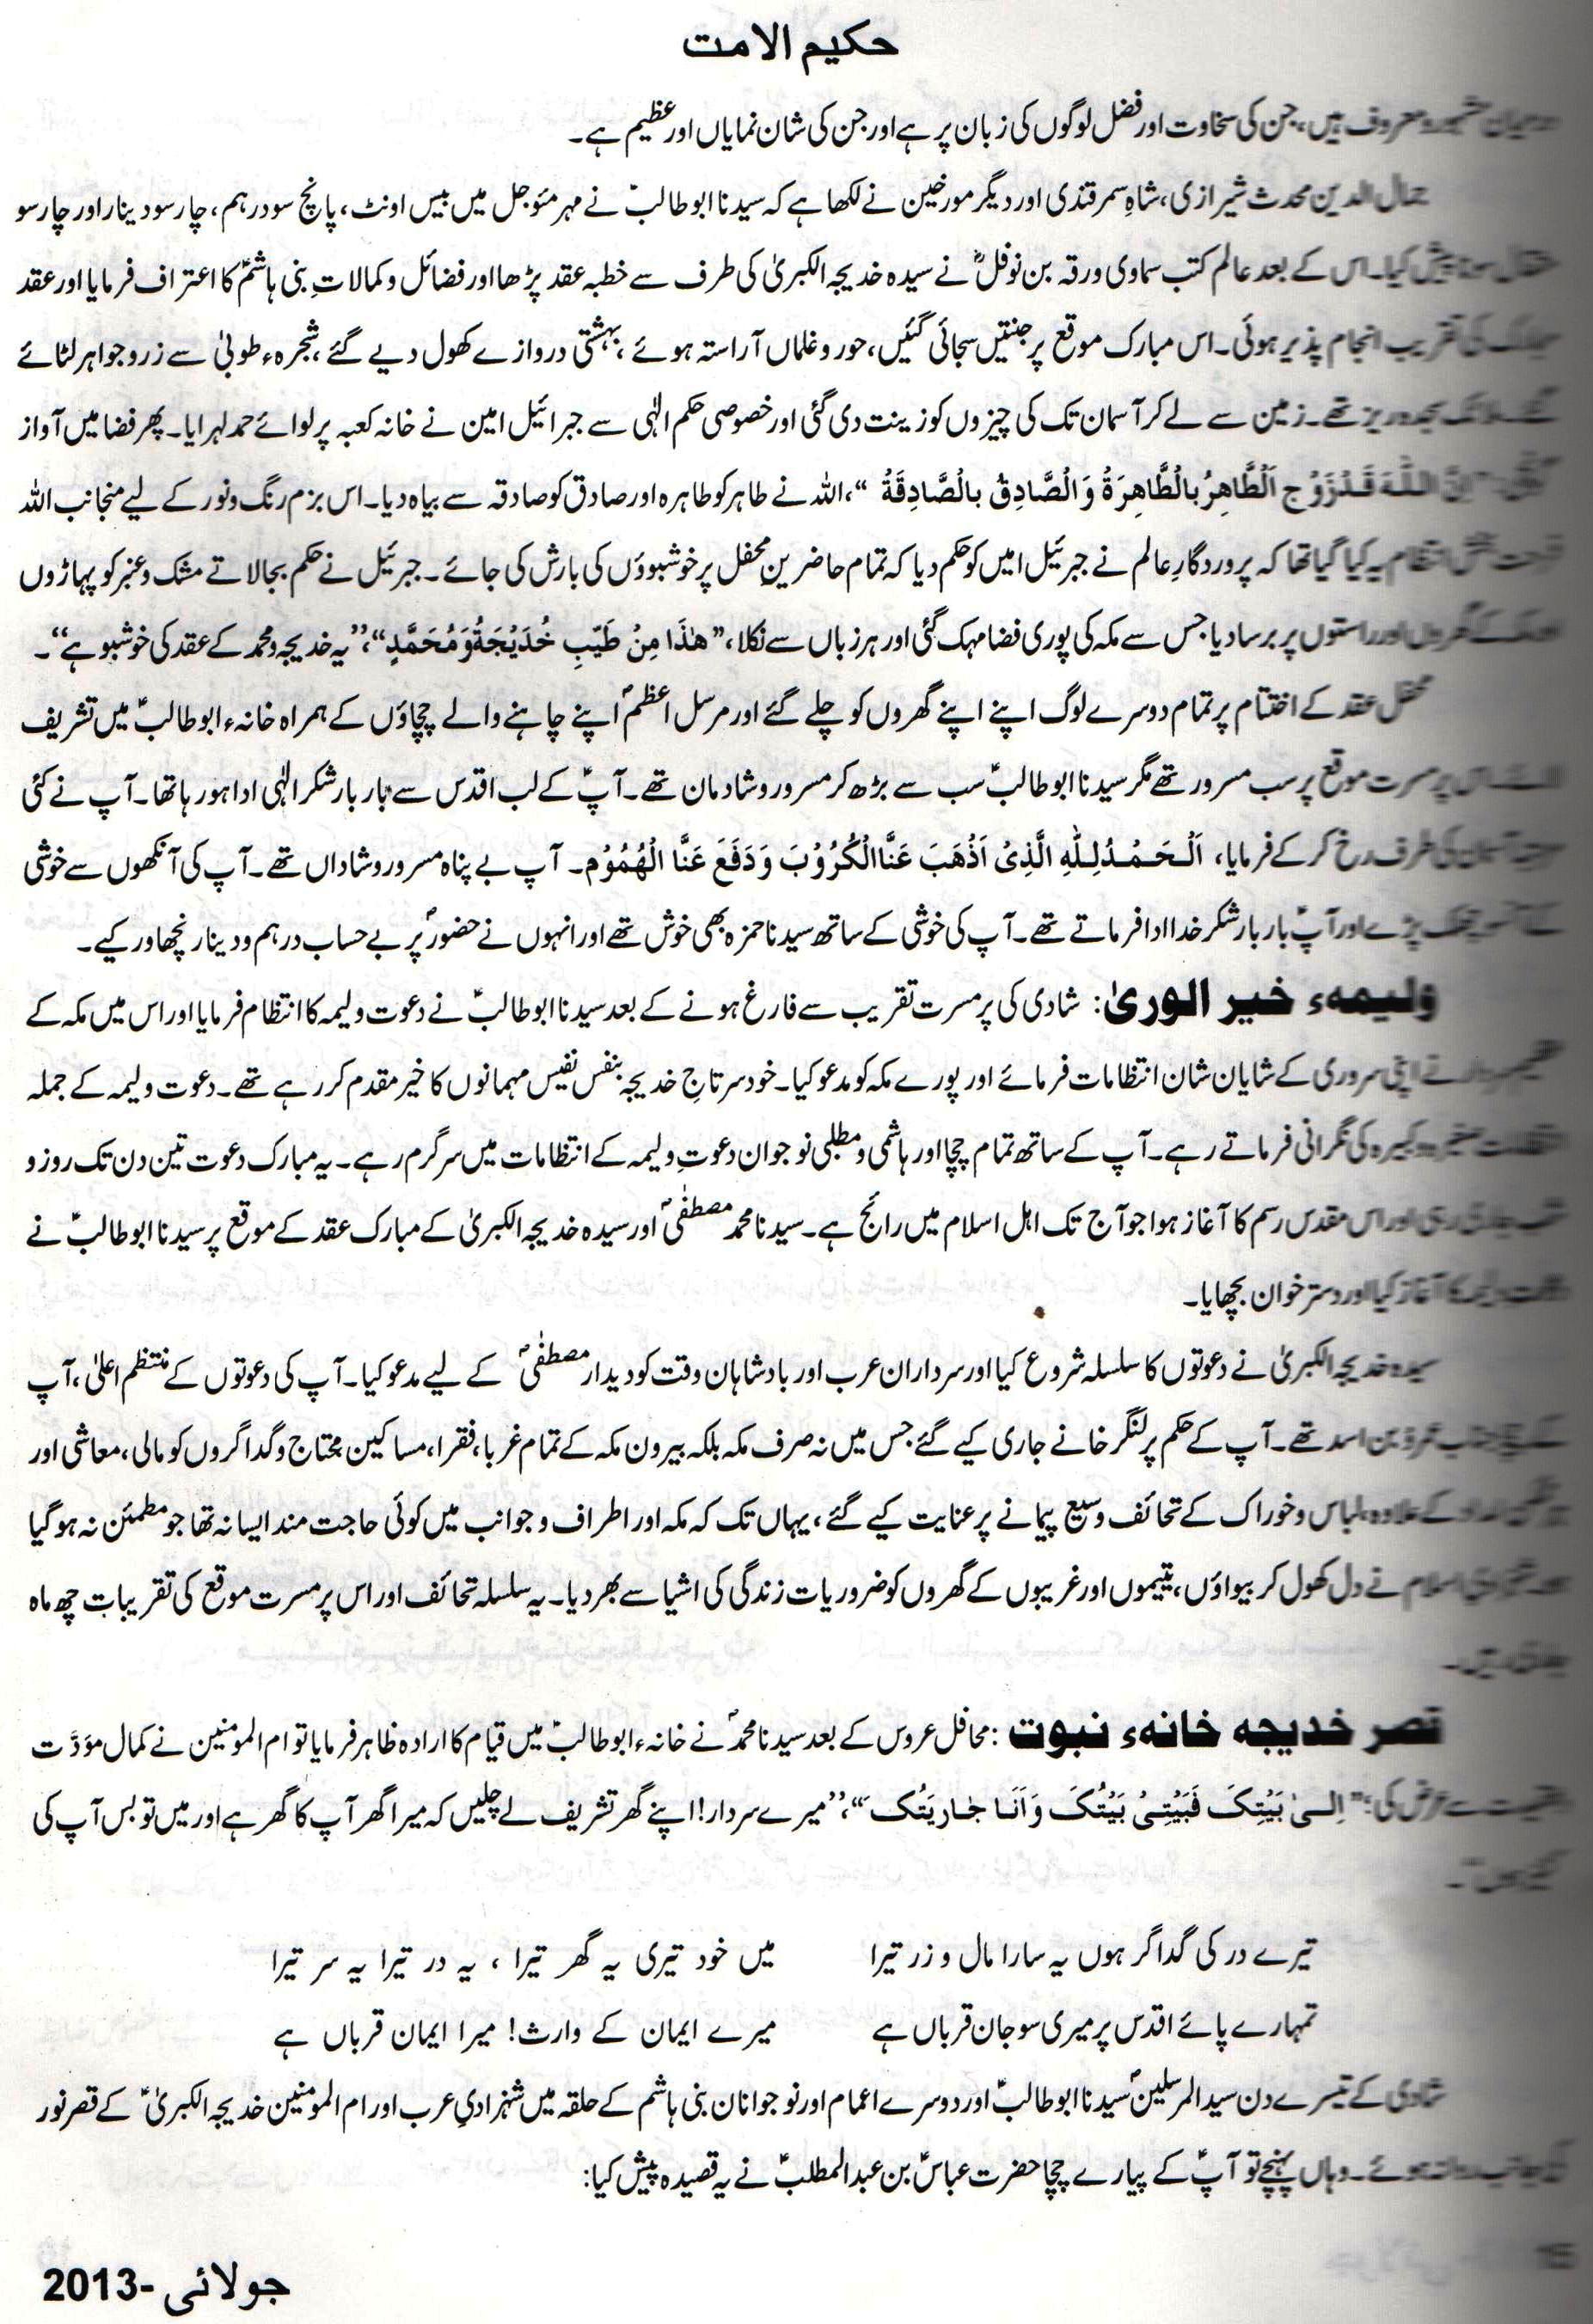 حکیم الامت
معروف ہیں، جن کی سخاوت اور فضل لوگوں کی زبان پر ہے اور جن کی شان نمایاں اور عظیم ہے۔
جمال الدین محدث شیرازی، شاہِ سمرقندی اور دیگر مورخین نے لکھا ہے کہ سیدنا ابوطالبؑ نے مہر مئوجل میں بیس اونٹ، پانچ سو درہم، چار سو دینار اور چار سو
مثقال سونا پیش کیا۔ اس کے بعد عالم کتب سماوی ورقہ بن نوفلؓ نے سیدہ خدیجہ الکبریٰ کی طرف سے خطبہ عقد پڑھا اور فضائل و کمالاتِ بنی ہاشمؑ کا اعتراف فرمایا اور عقد
کی تقریب انجام پذیر ہوئی۔ اس مبارک موقع پر جنتیں سجائی گئیں، حور و غلماں آراستہ ہوئے، بہشتی دروازے کھول دیے گئے، شجرہء طوبیٰ سے زر و جواہر لٹائے
سجدہ ریز تھے۔ زمین سے لے کر آسمان تک کی چیزوں کو زینت دی گئی اور خصوصی حکم الٰہی سے جبرائیل امین نے خانہ کعبہ پر لوائے حمد لہرایا۔ پھر فضا میں آواز
اِنَّ اللّٰهَ قَدْ زَوَّ ج اَلْطَّاهِرُ بالْطَّاهِرَةُ وَ الْصَّادِقُ بالْصَّادِقَةُ “، اللہ نے طاہر کو طاہرہ اور صادق کو صادقہ سے بیاہ دیا۔ اس بزم رنگ و نور کے لیے منجانب اللہ
انتظام یہ کیا گیا تھا کہ پروردگارِ عالم نے جبرئیل امیں کو حکم دیا کہ تمام حاضرینِ محفل پر خوشبوؤں کی بارش کی جائے۔ جبرئیل نے حکم بجالاتے مشک و عنبر کو پہاڑوں
اور راستوں پر برسا دیا جس سے مکہ کی پوری فضا مہک گئی اور ہر زباں سے نکلا، ”هٰذَا مِنْ طَيّبِ خُدَيْجَةُ وَ مُحَمَّدٍ“، ’’یہ خدیجہ و محمد کے عقد کی خوشبو ہے‘‘۔
محفل عقد کے اختتام پر تمام دوسرے لوگ اپنے اپنے گھروں کو چلے گئے اور مرسل اعظمؐ اپنے چاہنے والے چچاؤں کے ہمراہ خانہء ابوطالبؑ میں تشریف
لائے۔ اس پر مسرت موقع پر سب مسرور تھے مگر سیدنا ابوطالبؑ سب سے بڑھ کر مسرور و شادمان تھے۔ آپؑ کے لب اقدس سے بار بار شکر الٰہی ادا ہو رہا تھا۔ آپ نے کئی
کی طرف رخ کر کے فرمایا، اَلْحَمْدُ لِلّٰهِ الَّذِىْ اَذْهَبَ عَنَّا الْكُرُوْبَ وَ دَفَعَ عَنَّا الْهُمُوْم۔ آپ بے پناہ مسرور و شاداں تھے۔ آپ کی آنکھوں سے خوشی
کے آنسو چھلک پڑے اور آپؑ بار بار شکر خدا ادا فرماتے تھے۔ آپ کی خوشی کے ساتھ سیدنا حمزہ بھی خوش تھے اور انہوں نے حضورؐ پر بے حساب درہم و دینار نچھاور کیے۔
ولیمهء خیر الوریٰ: شادی کی پر مسرت تقریب سے فارغ ہونے کے بعد سیدنا ابوطالبؑ نے دعوت ولیمہ کا انتظام فرمایا اور اس میں مکہ کے
نے اپنی سروری کے شایان شان انتظامات فرمائے اور پورے مکہ کو مدعو کیا۔ خود سرتاجِ خدیجہ بنفس نفیس مہمانوں کا خیر مقدم کر رہے تھے۔ دعوت ولیمہ کے جملہ
صغیرہ و کبیرہ کی نگرانی فرماتے رہے۔ آپ کے ساتھ تمام چچا اور ہاشمی و مطلبی نوجوان دعوتِ ولیمہ کے انتظامات میں سرگرم رہے۔ یہ مبارک دعوت تین دن تک روز و
شب جاری رہی اور اس مقدس رسم کا آغاز ہوا جو آج تک اہل اسلام میں رائج ہے۔ سیدنا محمد مصطفٰیؐ اور سیدہ خدیجہ الکبریٰ کے مبارک عقد کے موقع پر سیدنا ابوطالبؑ نے
دعوت ولیمہ کا آغاز کیا اور دسترخوان بچھایا۔
سیدہ خدیجہ الکبریٰ نے دعوتوں کا سلسلہ شروع کیا اور سرداران عرب اور بادشاہان وقت کو دیدار مصطفٰیؐ کے لیے مدعو کیا۔ آپ کی دعوتوں کے منتظم اعلیٰ، آپ
کے چچا جناب عمرو بن اسد تھے۔ آپ کے حکم پر لنگر خانے جاری کیے گئے جس میں نہ صرف مکہ بلکہ بیرون مکہ کے تمام غربا، فقرا، مساکین محتاج و گداگروں کو مالی، معاشی اور
امداد کے علاوہ لباس و خوراک کے تحائف وسیع پیمانے پر عنایت کیے گئے، یہاں تک کہ مکہ اور اطراف و جوانب میں کوئی حاجت مند ایسا نہ تھا جو مطمئن نہ ہو گیا
اسلام نے دل کھول کر بیواؤں، یتیموں اور غریبوں کے گھروں کو ضروریات زندگی کی اشیا سے بھر دیا۔ یہ سلسلہ تحائف اور اس پر مسرت موقع کی تقریبات چھ ماہ
جاری رہیں۔
قصر خدیجه خانهء نبوت: محافل عروس کے بعد سیدنا محمدؐ نے خانہء ابوطالبؑ میں قیام کا ارادہ ظاہر فرمایا تو ام المومنین نے کمال مؤدّت
سے عرض کی؛ ”اِلىٰ بَيْتِكَ فَبَيْتِىْ بَيْتُكَ وَ اَنَا جٰارِيَتُكَ“، ’’میرے سردار! اپنے گھر تشریف لے چلیں کہ میرا گھر آپ کا گھر ہے اور میں تو بس آپ کی
کنیز ہوں‘‘۔
تیرے در کی گداگر ہوں یہ سارا مال و زر تیرا میں خود تیری یہ گھر تیرا ، یہ در تیرا یہ سر تیرا
تمہارے پائے اقدس پر میری سو جان قرباں ہے میرے ایمان کے وارث! میرا ایمان قرباں ہے
شادی کے تیسرے دن سید المرسلینؐ سیدنا ابوطالبؑ اور دوسرے اعمام اور نوجوانان بنی ہاشم کے حلقہ میں شہزادیِ عرب اور ام المومنین خدیجہ الکبریٰؑ کے قصر نور
کی جانب روانہ ہوئے۔ وہاں پہنچے تو آپؐ کے پیارے چچا حضرت عباسؑ بن عبدالمطلبؑ نے یہ قصیدہ پیش کیا:
جولائی -2013
15